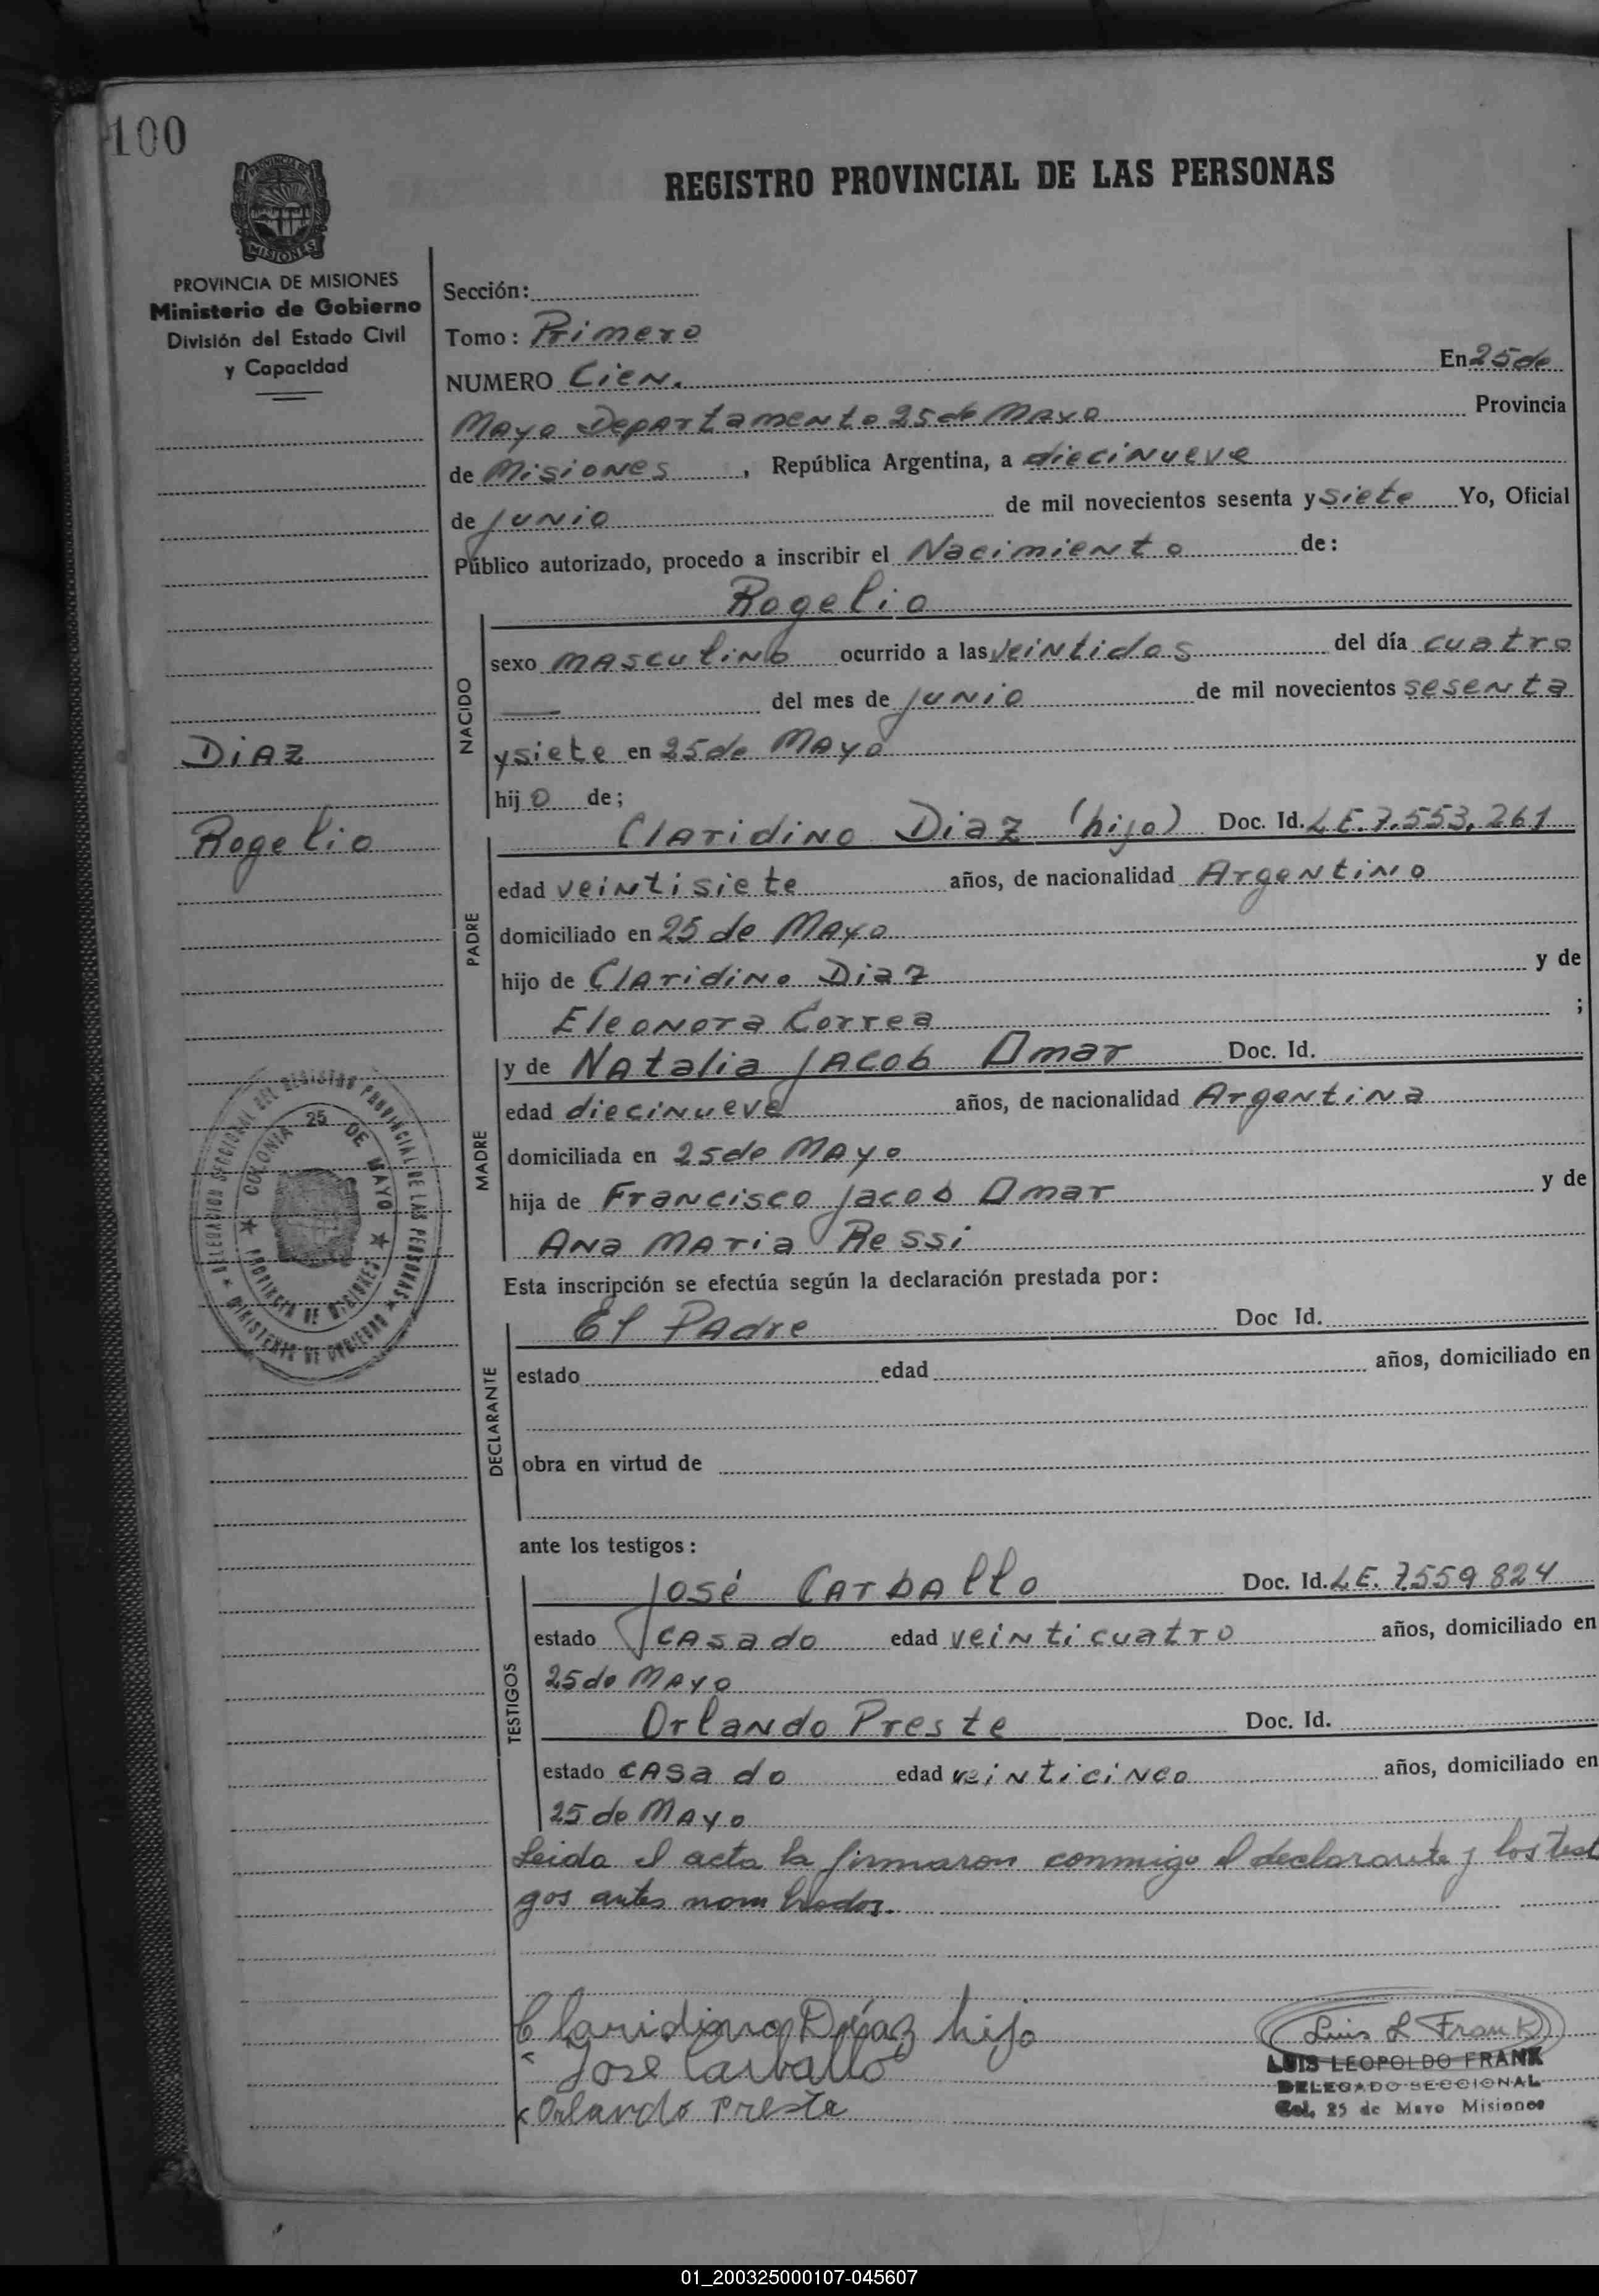 100
PROVINCIA DE MISIONES
Ministerio de Gobierno
División del Estado Civil
y Capacidad
REGISTRO PROVINCIAL DE LAS PERSONAS
Sección:
Tomo: Primero
NUMERO Cien. En 25 de
Mayo Departamento 25 de Mayo Provincia
de Misiones, República Argentina, a diecinueve
de junio de mil novecientos sesenta y siete Yo, Oficial
Público autorizado, procedo a inscribir el Nacimiento de:
NACIDO
Rogelio
sexo masculino ocurrido a las veintidos del día cuatro
— del mes de junio de mil novecientos sesenta
y siete en 25 de Mayo
hijo de;
Diaz
Rogelio
PADRE
Claridino Diaz (hijo) Doc. Id. L.E. 7.553.261
edad veintisiete años, de nacionalidad Argentino
domiciliado en 25 de Mayo
hijo de Claridino Diaz y de
Eleonora Correa ;
MADRE
y de Natalia Jacob Omar Doc. Id.
edad diecinueve años, de nacionalidad Argentina
domiciliada en 25 de Mayo
hija de Francisco Jacob Omar y de
Ana Maria Ressi
DELEGACION SECCIONAL DEL REGISTRO PROVINCIAL DE LAS PERSONAS
MINISTERIO DE GOBIERNO
COLONIA 25 DE MAYO
PROVINCIA DE MISIONES
Esta inscripción se efectúa según la declaración prestada por:
DECLARANTE
El Padre Doc Id.
estado edad años, domiciliado en
obra en virtud de
ante los testigos:
TESTIGOS
José Carballo Doc. Id. L.E. 7.559.824
estado casado edad veinticuatro años, domiciliado en
25 de Mayo
Orlando Preste Doc. Id.
estado casado edad veinticinco años, domiciliado en
25 de Mayo
Leida el acta la firmaron conmigo el declarante y los testi
gos antes nombrados.
Claridino Díaz hijo
Jose Carballo
Orlando Preste
Luis L Frank
LUIS LEOPOLDO FRANK
DELEGADO SECCIONAL
Col. 25 de Mayo Misiones
01_200325000107-045607